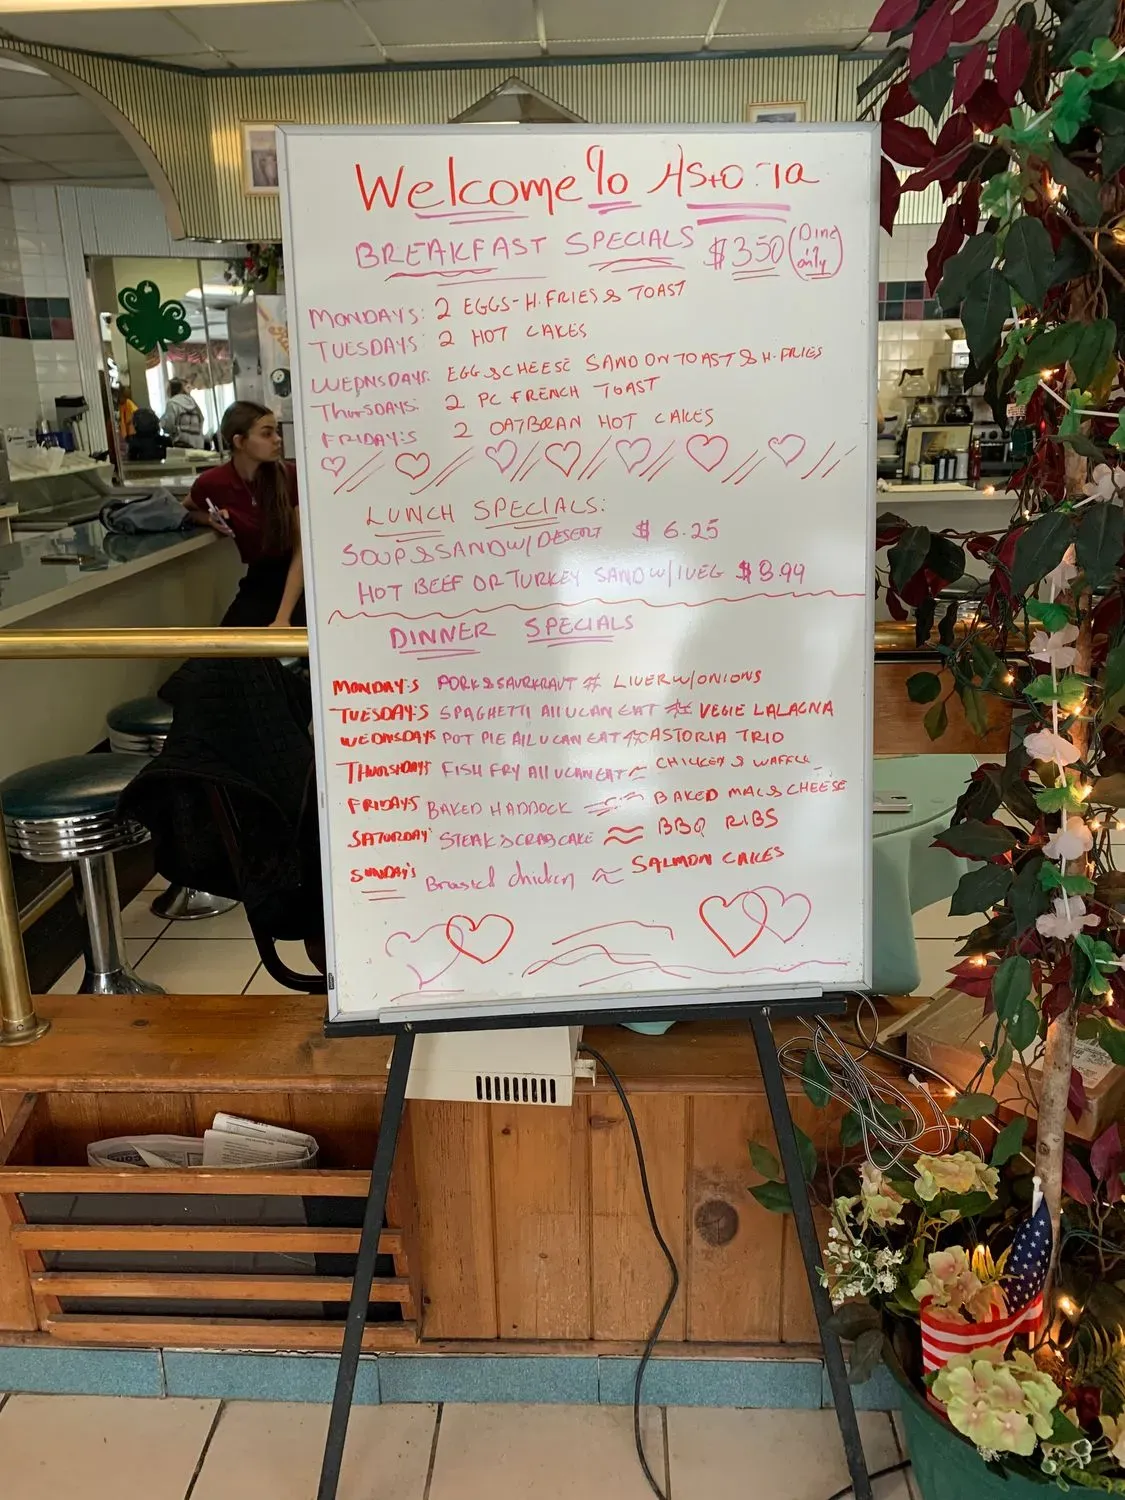 Welcome to Astoria
BREAKFAST SPECIALS $350 (Dine in only)
MONDAYS: 2 EGGS - H. FRIES & TOAST
TUESDAYS: 2 HOT CAKES
WEDNSDAYS: EGG & CHEESE SAND ON TOAST & H. FRIES
THURSDAYS: 2 PC FRENCH TOAST
FRIDAY:S 2 OATBRAN HOT CAKES
LUNCH SPECIALS:
SOUP & SAND W/ DESERT $6.25
HOT BEEF OR TURKEY SAND W/ 1 VEG $8.99
DINNER SPECIALS
MONDAY:S PORK & SAURKRAUT LIVER W/ONIONS
TUESDAY:S SPAGHETTI All U CAN EAT VEGIE LALAGNA
WEDNSDAYS POT PIE All U CAN EAT ASTORIA TRIO
THURSDAYS FISH FRY All U CAN EAT ~ CHICKEN & WAFFLE
FRIDAYS BAKED HADDOCK BAKED MAC & CHEESE
SATURDAY' STEAK & CRAB CAKE ≈ BBQ RIBS
SUNDAY'S Broasted chicken ≈ SALMON CAKES